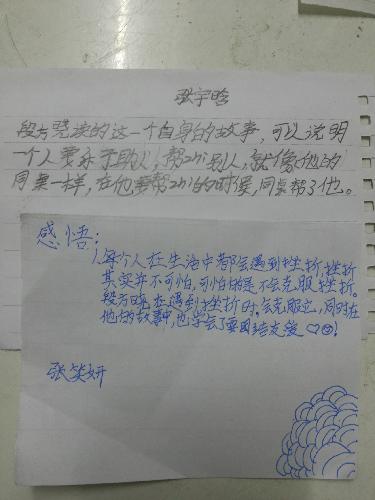 张宇晗
段方骁读的这一个自身的故事，可以说明
一个人要乐于助人，帮助别人，就像他的
同桌一样，在他要帮助的时候，同桌帮了他。
感悟：
每个人在生活中都会遇到挫折，挫折
其实并不可怕，可怕的是不会克服挫折。
段方骁在遇到挫折时，会克服它，同时在
他的故事中，也学会了要团结友爱♡☺！
张焱妍